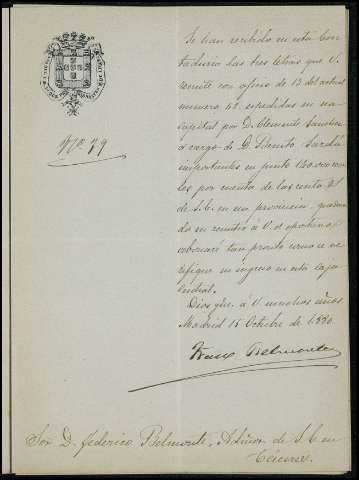 Nº 79
Se han recibido en esta Con-
taduria las tres letras que V.
remite con oficio de 13 del actual
numero 42 espedidas en esa
capital por D. Clemente Sanchez
a cargo de D. Benito
importantes en junto 120.000 rea-
les por cuenta de las rentas
de S.E. en esa provincia, quedan-
do en remitir á V. el oportuno
tan pronto como se ve-
rifique su ingreso en esta caja
central.
Dios gue. á V. muchos años
Madrid 15 Octubre de 1880.
Franco Belmonte
Sor D. Federico Belmonte, Admor de S.E. en
Cáceres.